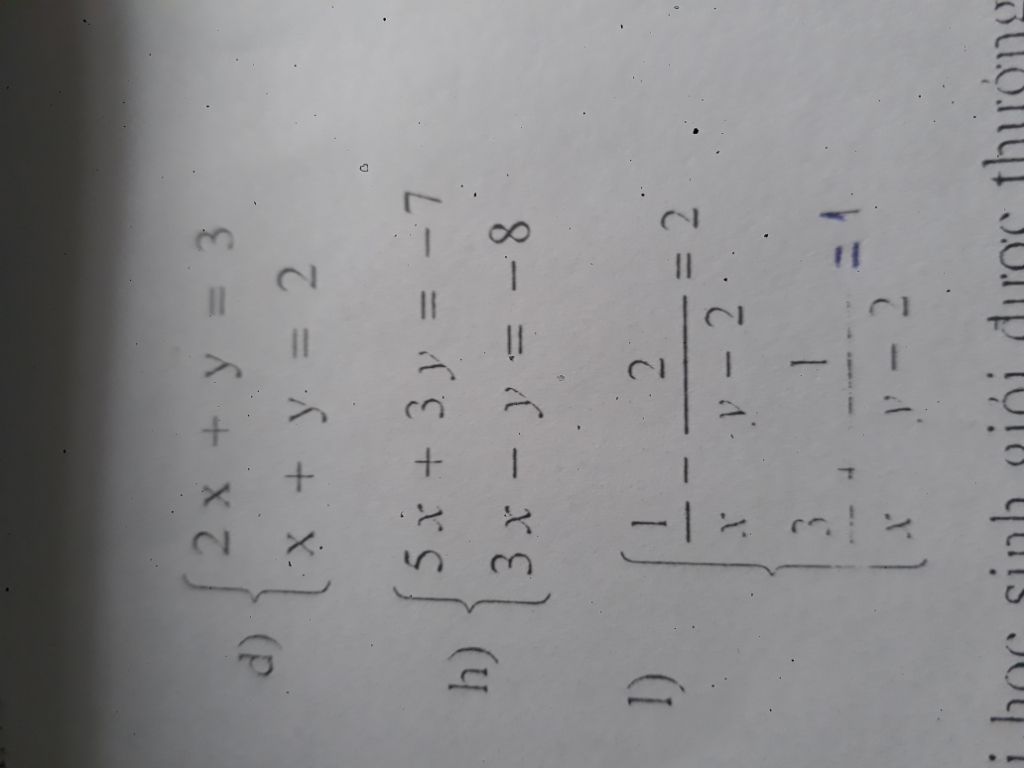 d) { 2x + y = 3
x + y = 2
h) { 5x + 3y = -7
3x - y = -8
l) { 1/x - 2/(y - 2) = 2
3/x + 1/(y - 2) = 1
học sinh giỏi được thưởng